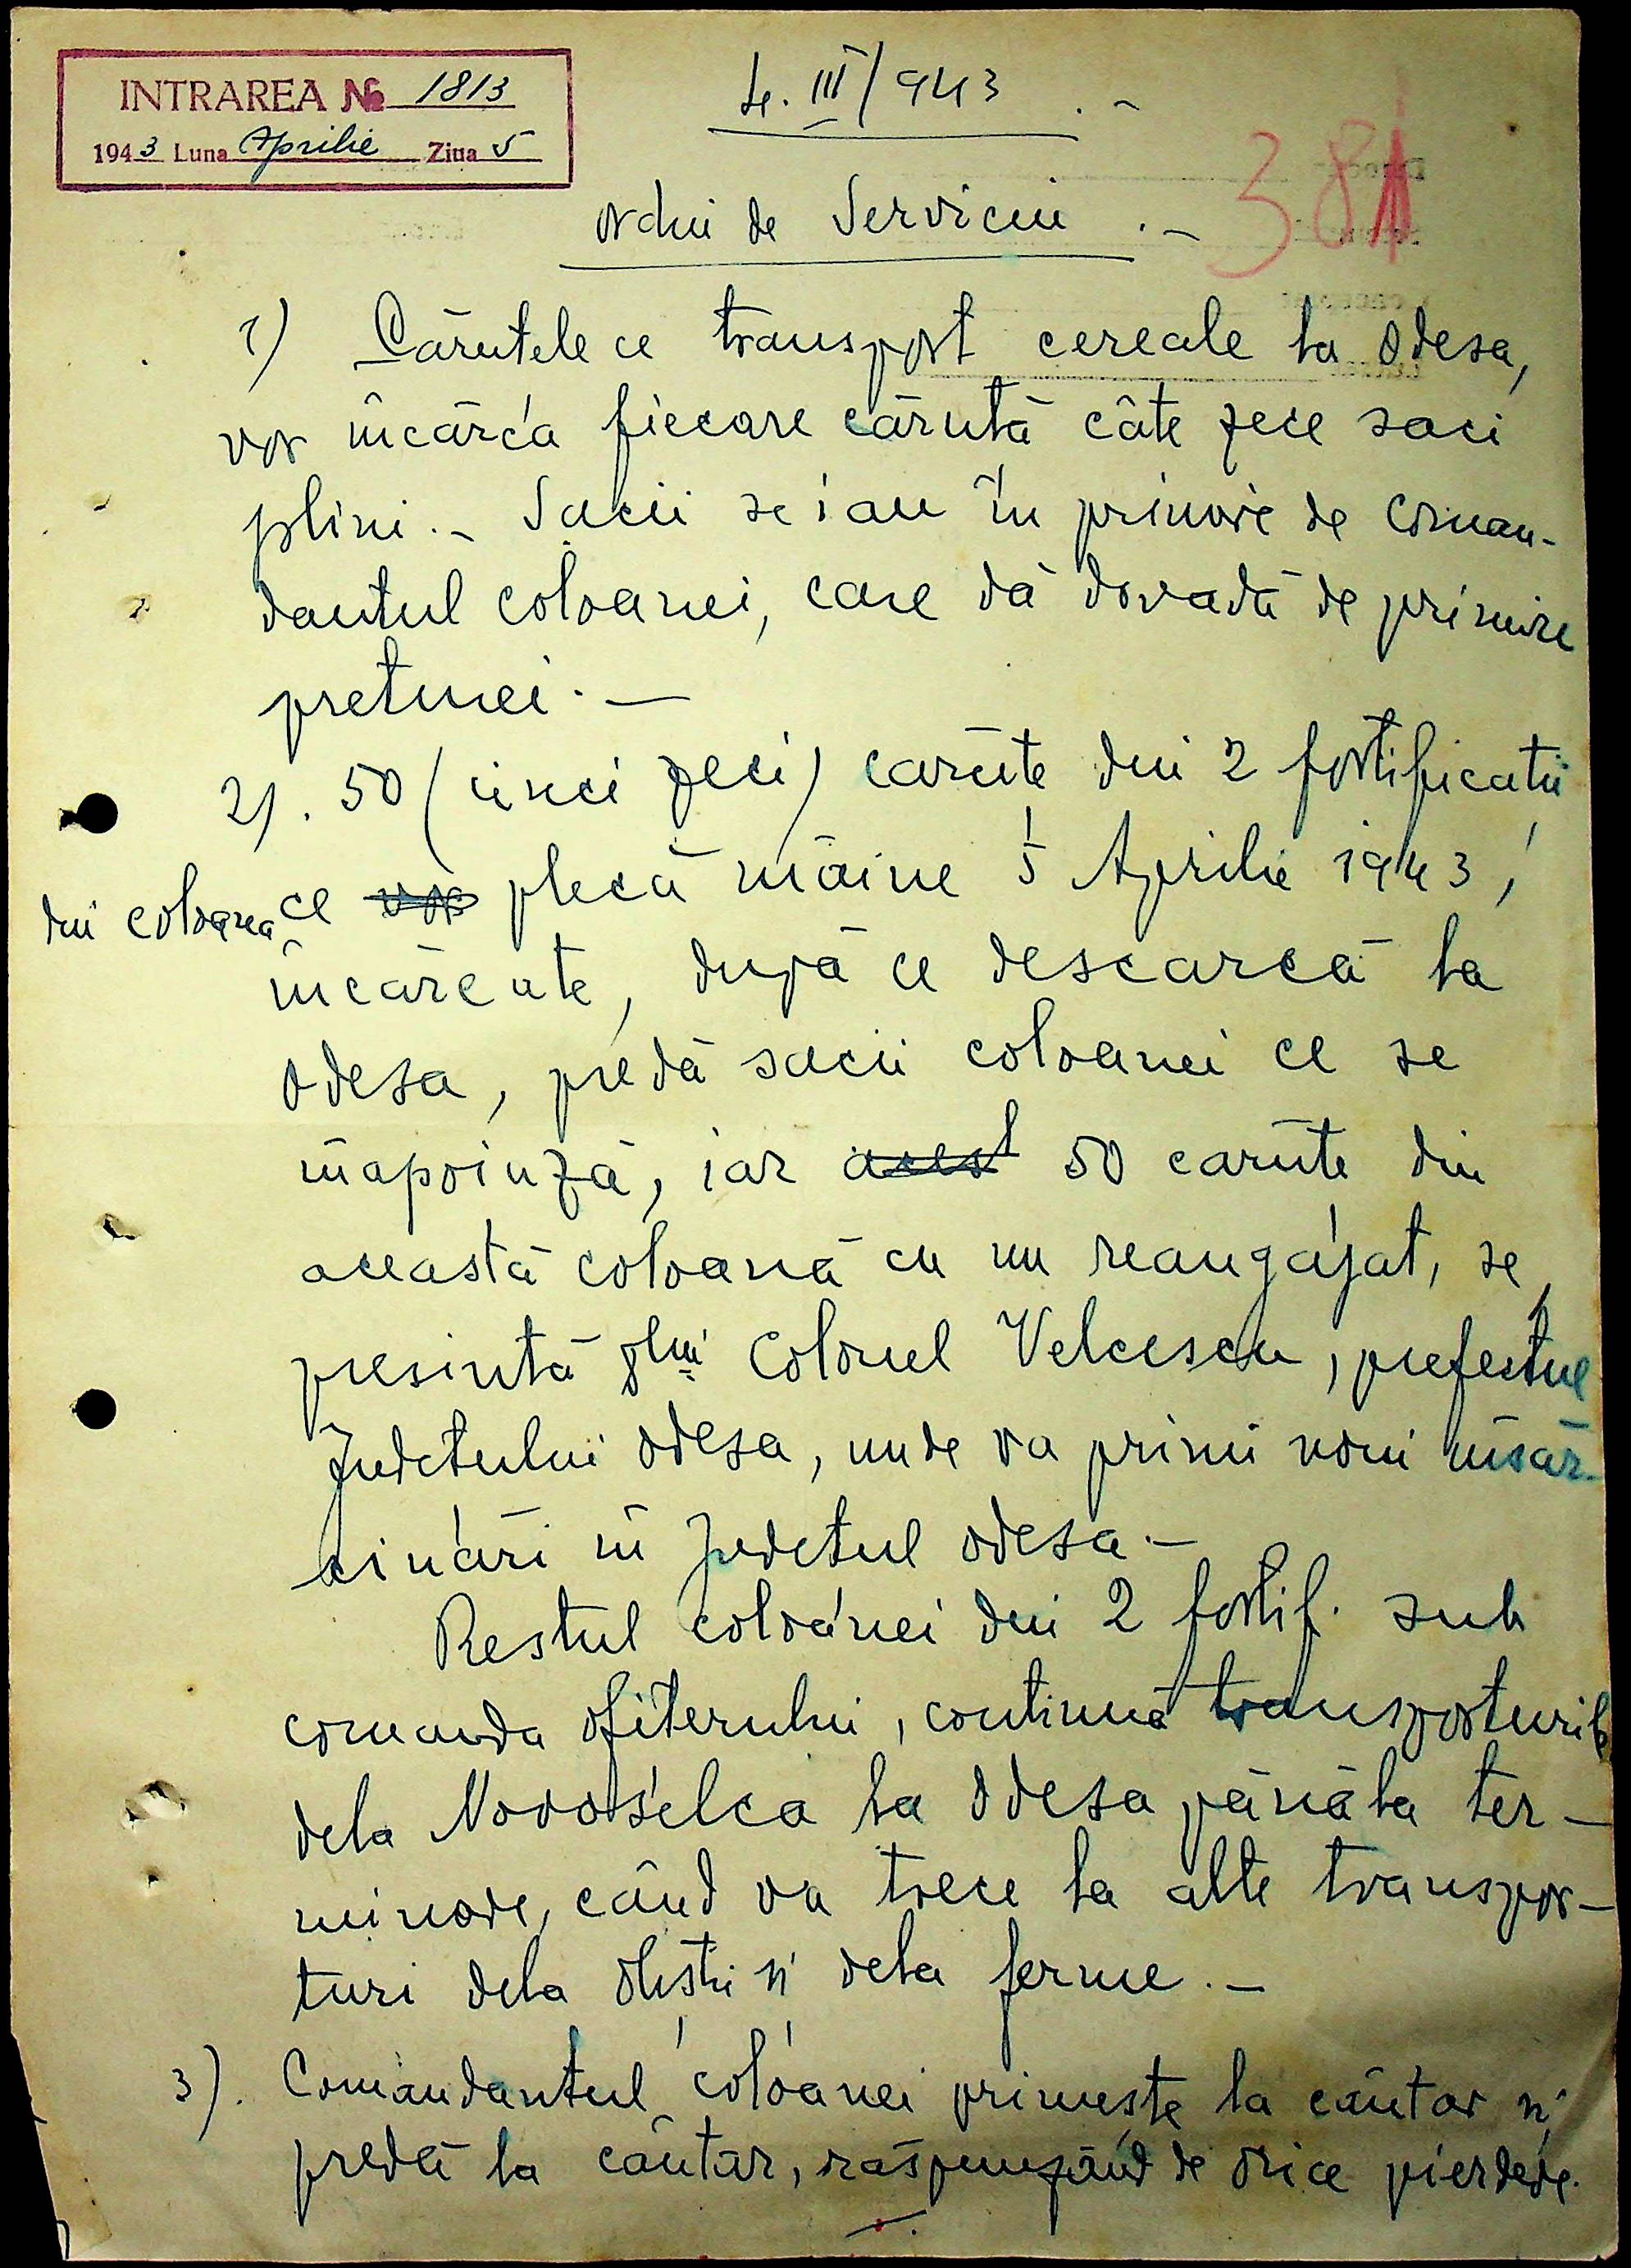 INTRAREA No 1813
1943 Luna Aprilie Ziua 5
4. III/943 .-
381
Ordin de Serviciu .-
1) Cărutele ce transport cereale la Odesa,
vor încărca fiecare cărută câte zece saci
plini.- Sacii se iau în primire de coman-
dantul coloanei, care dă dovadă de primire
preturei.-
2). 50 (cinci zeci) carute din 2 fortificatii
din coloana ce vor plecă mâine 5 Aprilie 1943,
încărcate, după ce descarcă la
Odesa, predă sacii coloanei ce se
înapoiază, iar acest 50 carute din
această coloană cu un reangajat, se
presintă Dlui Colonel Velcescu, prefectul
Judetului Odesa, unde va primi noui însăr-
cinări în Judetul Odesa.-
Restul coloanei din 2 fortif. sub
comanda ofiterului, continuă transporturile
dela Novoselca la Odesa până la ter-
minare, când va trece la alte transpor-
turi dela obsti si dela ferme.-
3). Comandantul coloanei primeste la cântar si
predă la cântar, răspunzând de orice pierdere.